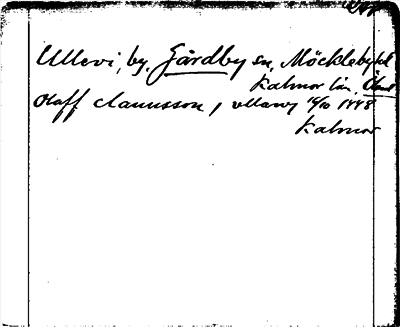 Ullevi, by, Gårdby sn, Möckleby hd
Kalmar län, Öland
Olaff Clauusson, vllawy 16/10 1448
Kalmar